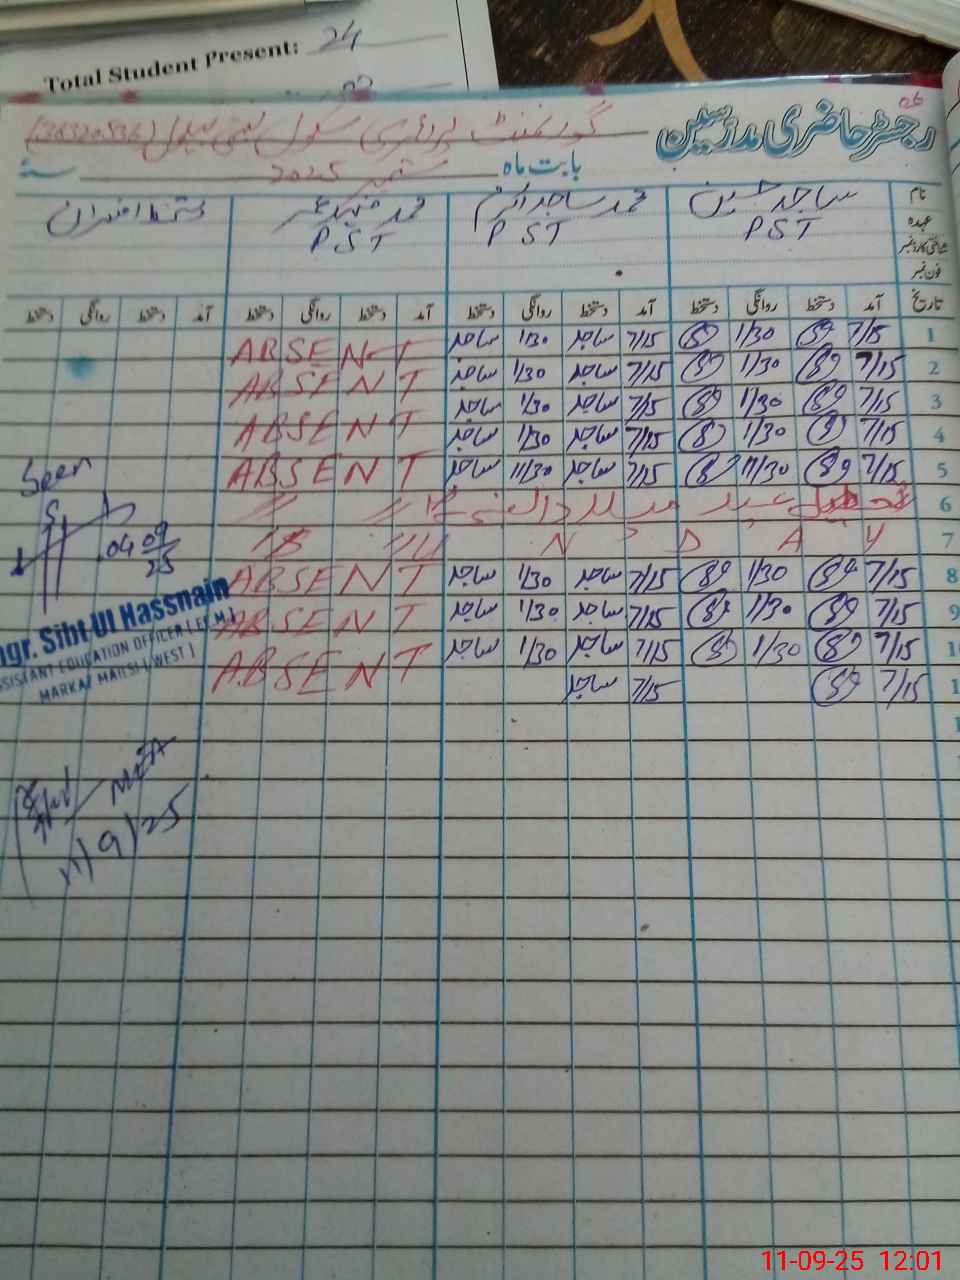 Total Student Present: 24
رجسٹر حاضری مدرسین
گورنمنٹ پرائمری سکول
بابت ماہ ستمبر 2025 سنہ
نام ساجد حسین محمد ساجد محمد دستخط افسران
عہدہ PST PST PST
شناختی کارڈ نمبر
فون نمبر
تاریخ آمد دستخط روانگی دستخط آمد دستخط روانگی دستخط آمد دستخط روانگی دستخط آمد دستخط روانگی دستخط
1 7/15 1/30 7/15 ساجد 1/30 ساجد ABSENT
2 7/15 1/30 7/15 ساجد 1/30 ساجد ABSENT
3 7/15 1/30 7/15 ساجد 1/30 ساجد ABSENT
4 7/15 1/30 7/15 ساجد 1/30 ساجد ABSENT
5 7/15 11/30 7/15 ساجد 11/30 ساجد ABSENT
6 تعطیل عید میلاد النبی
7 SUNDAY
8 7/15 1/30 7/15 ساجد 1/30 ساجد ABSENT
9 7/15 1/30 7/15 ساجد 1/30 ساجد ABSENT
10 7/15 1/30 7/15 ساجد 1/30 ساجد ABSENT
7/15 7/15 ساجد
Seen
04 09 25
Engr. Sibt Ul Hassnain
ASSISTANT EDUCATION OFFICER (EE.M)
MARKAZ MAILSI (WEST)
MEA
11/9/25
11-09-25 12:01